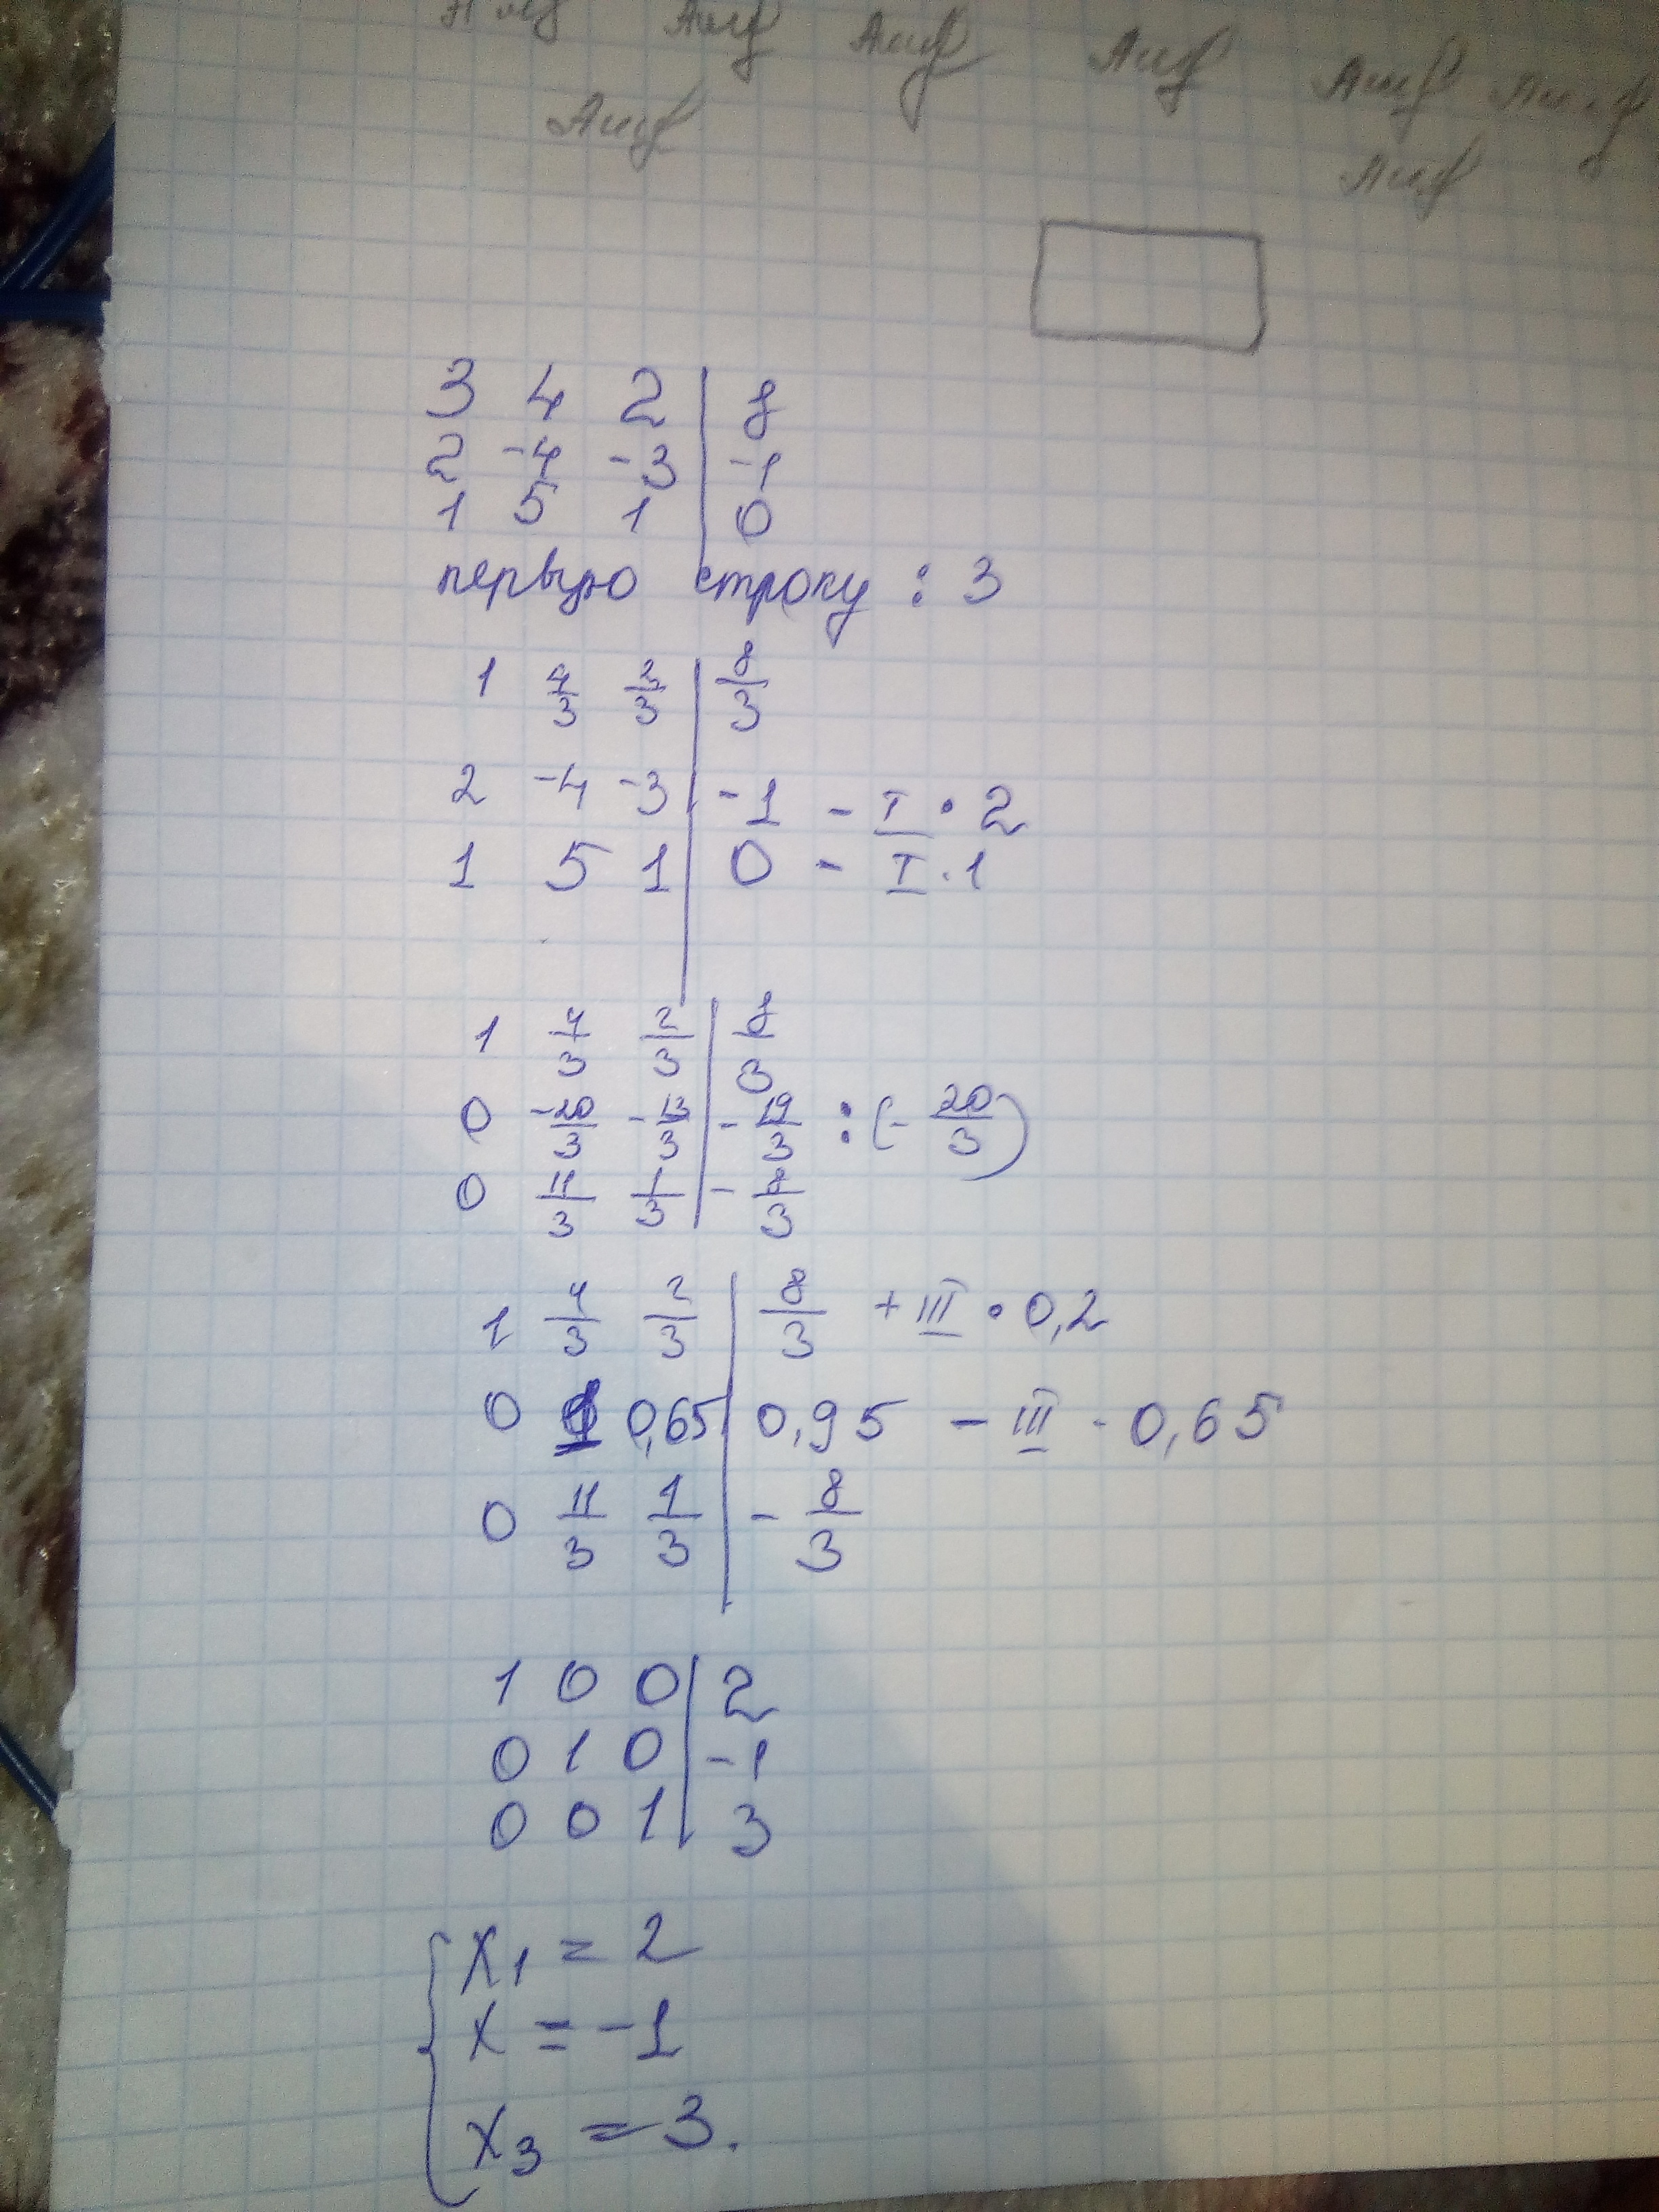 3 4 2 | 8
2 -4 -3 | -1
1 5 1 | 0
первую строку : 3
1 4/3 2/3 | 8/3
2 -4 -3 | -1 - I · 2
1 5 1 | 0 - I · 1
1 4/3 2/3 | 8/3
0 -20/3 -13/3 | -19/3 : (-20/3)
0 11/3 1/3 | -8/3
1 4/3 2/3 | 8/3 + III · 0,2
0 1 0,65 | 0,95 - III · 0,65
0 11/3 1/3 | -8/3
1 0 0 | 2
0 1 0 | -1
0 0 1 | 3
{ x1 = 2
x = -1
x3 = 3.